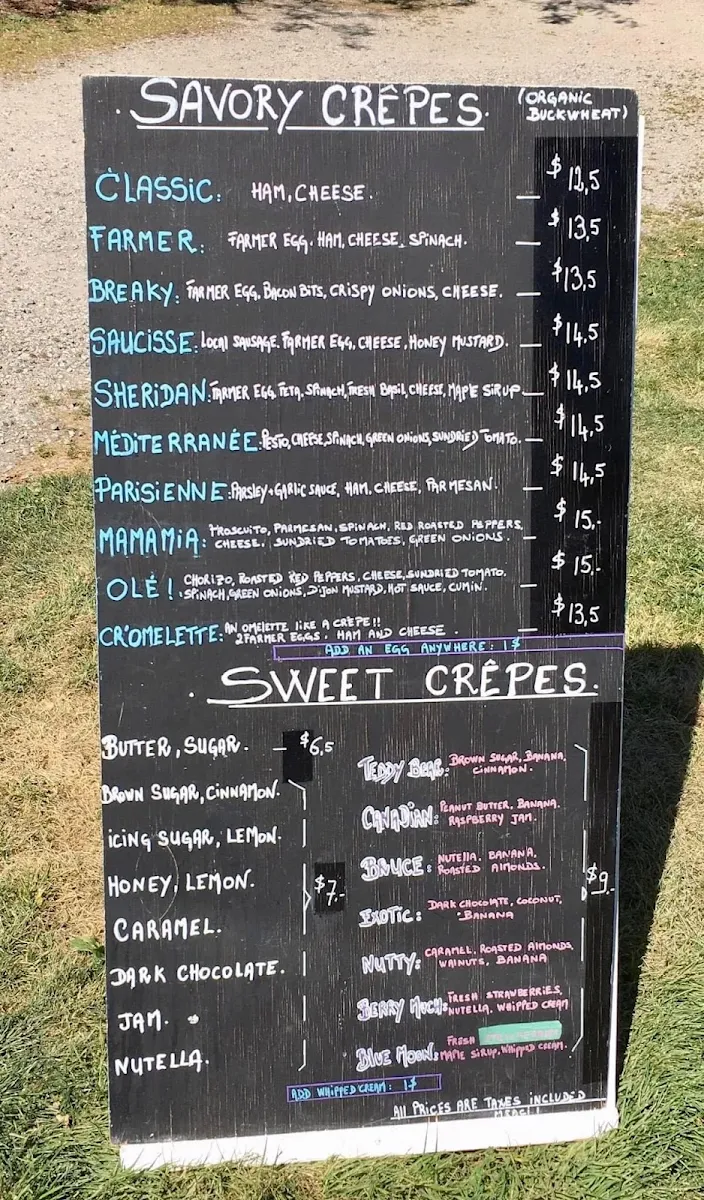 SAVORY CRÊPES (ORGANIC BUCKWHEAT)
CLASSIC: HAM, CHEESE. — $12,5
FARMER: FARMER EGG. HAM, CHEESE, SPINACH. — $13,5
BREAKY: FARMER EGG, BACON BITS, CRISPY ONIONS, CHEESE. — $13,5
SAUCISSE: LOCAL SAUSAGE. FARMER EGG, CHEESE, HONEY MUSTARD. — $14,5
SHERIDAN: FARMER EGG, FETA, SPINACH, FRESH BASIL, CHEESE, MAPLE SIRUP — $14,5
MÉDITERRANÉE: PESTO, CHEESE, SPINACH, GREEN ONIONS, SUNDRIED TOMATO. — $14,5
PARISIENNE: PARSLEY + GARLIC SAUCE, HAM, CHEESE, PARMESAN. — $14,5
MAMAMIA: PROSCUITO, PARMESAN, SPINACH, RED ROASTED PEPPERS, — $15.-
CHEESE. SUNDRIED TOMATOES, GREEN ONIONS.
OLÉ!: CHORIZO, ROASTED RED PEPPERS, CHEESE, SUNDRIED TOMATO. — $15.-
SPINACH, GREEN ONIONS, DIJON MUSTARD, HOT SAUCE, CUMIN.
CR'OMELETTE: AN OMELETTE LIKE A CRÊPE!! — $13,5
2 FARMER EGGS. HAM AND CHEESE.
ADD AN EGG ANYWHERE: 1$
SWEET CRÊPES.
BUTTER, SUGAR. — $6,5
BROWN SUGAR, CINNAMON.
ICING SUGAR, LEMON.
HONEY, LEMON.
$7.-
CARAMEL.
DARK CHOCOLATE.
JAM.
NUTELLA.
TEDDY BEAR: BROWN SUGAR, BANANA,
CINNAMON.
CANADIAN: PEANUT BUTTER, BANANA.
RASPBERRY JAM.
BRUCE: NUTELLA. BANANA,
ROASTED ALMONDS.
$9.-
EXOTIC: DARK CHOCOLATE, COCONUT,
BANANA
NUTTY: CARAMEL, ROASTED ALMONDS,
WALNUTS, BANANA
BERRY MUCH: FRESH STRAWBERRIES,
NUTELLA, WHIPPED CREAM
BLUE MOON: FRESH
MAPLE SIRUP, WHIPPED CREAM.
ADD WHIPPED CREAM: 1$
ALL PRICES ARE TAXES INCLUDED